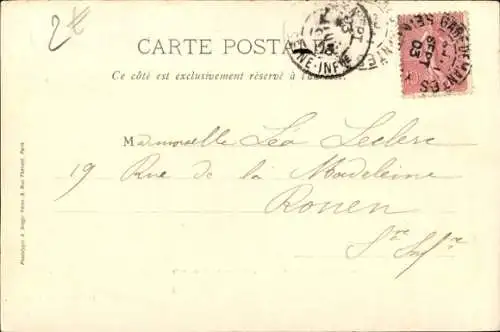 2 €
CARTE POSTALE
Ce côté est exclusivement réservé à l'adresse
Mademoiselle Léa Leclerc
19 Rue de la Madeleine
Rouen
Sre Infre
SEINE-INFRE
GARE DE
03